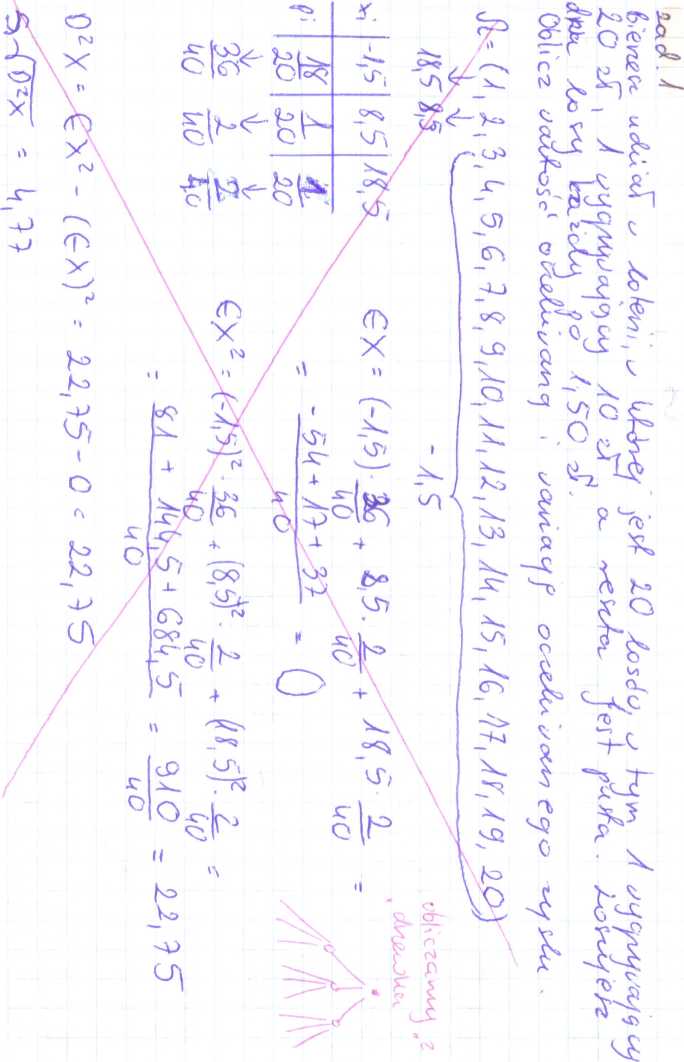 zad 1
bierzesz udział w loterii, w której jest 20 losów, w tym 1 wygrywający
20 zł, 1 wygrywający 10 zł a reszta jest pusta. Losujesz
dwa losy każdy po 1,50 zł.
Oblicz wartość oczekiwaną i wariację oczekiwanego zysku.
Ω = (1, 2, 3, 4, 5, 6, 7, 8, 9, 10, 11, 12, 13, 14, 15, 16, 17, 18, 19, 20)
↓ ↓
18,5 8,5
-1,5
xi -1,5 8,5 18,5
pi 18/20 1/20 1/20
↓ ↓ ↓
36/40 2/40 2/40
EX = (-1,5) · 36/40 + 8,5 · 2/40 + 18,5 · 2/40 =
= (-54 + 17 + 37)/40 = 0
EX² = (-1,5)² · 36/40 + (8,5)² · 2/40 + (18,5)² · 2/40 =
= (81 + 144,5 + 684,5)/40 = 910/40 = 22,75
D²X = EX² - (EX)² = 22,75 - 0 = 22,75
√D²X = 4,77
obliczamy z
drzewka